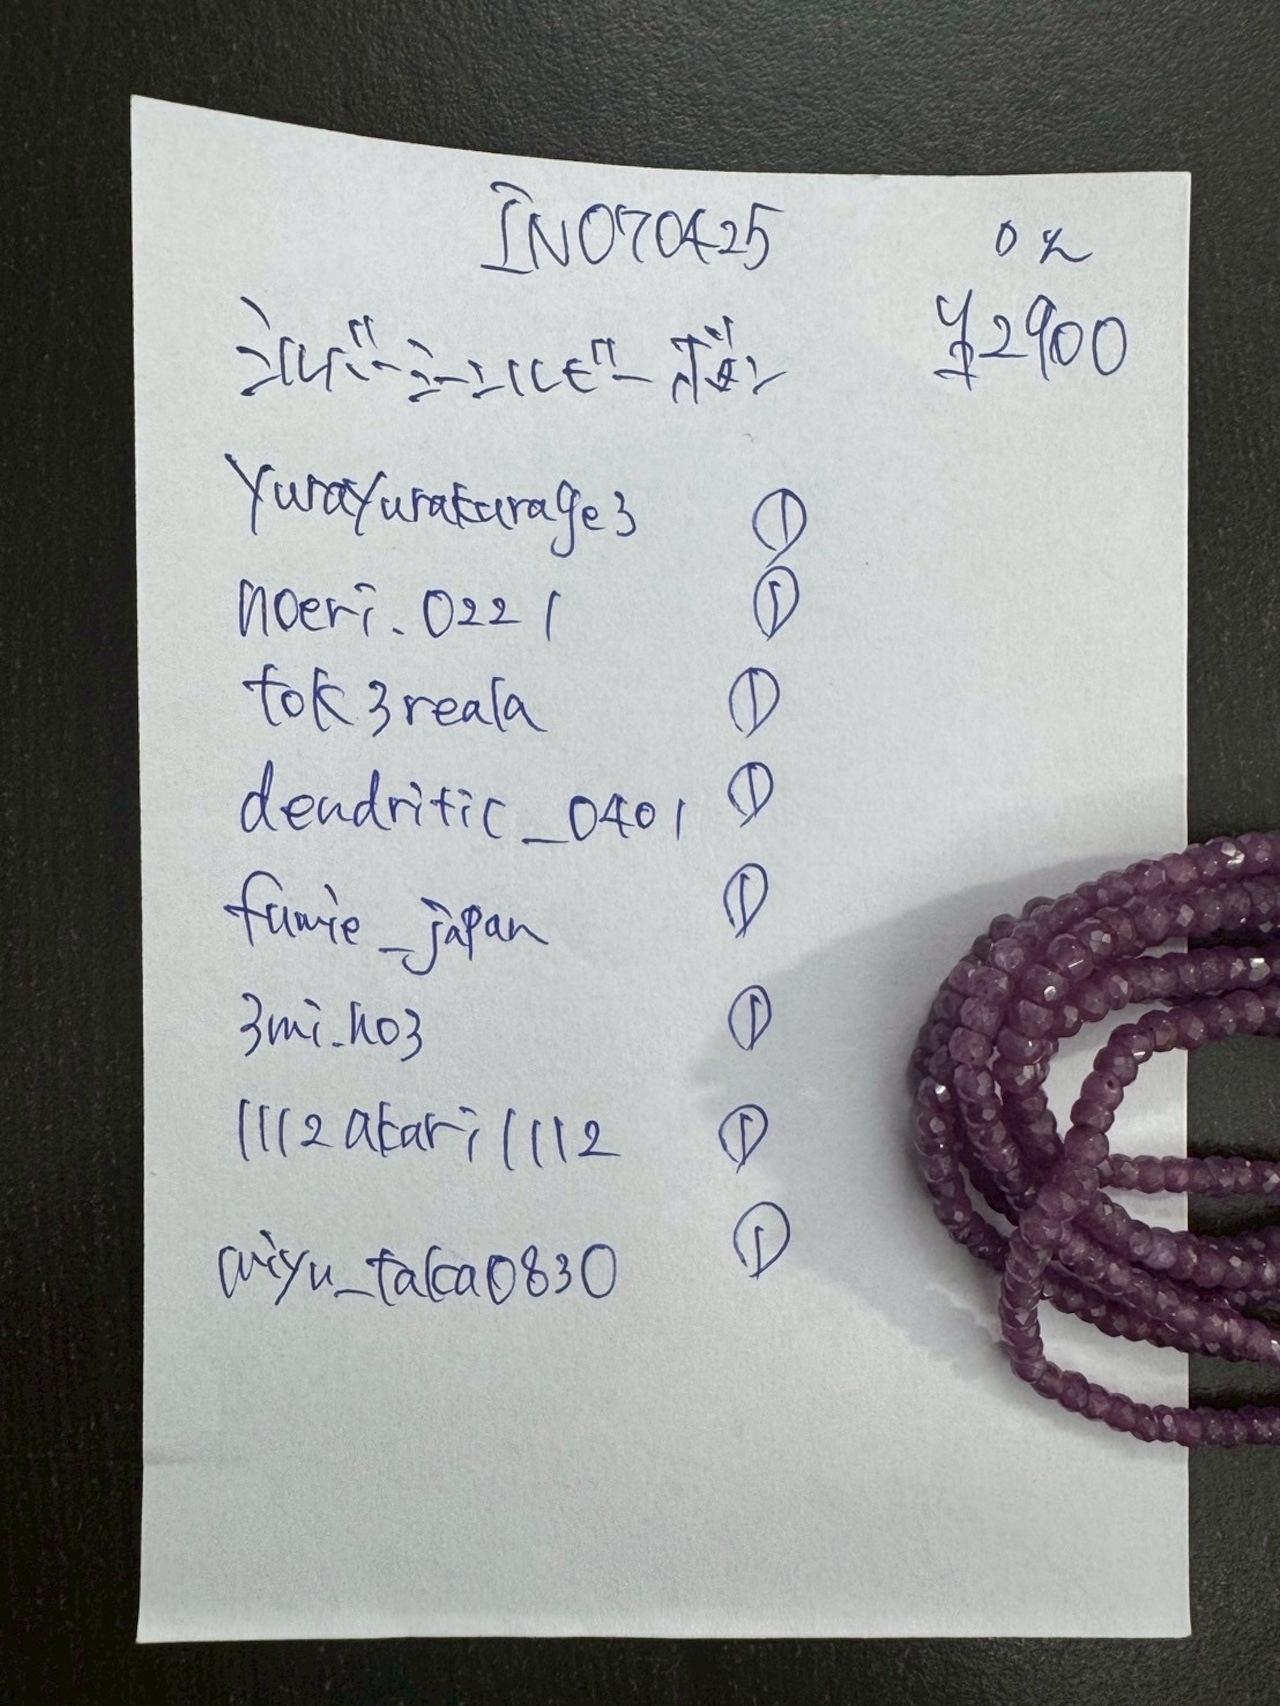 IN070425
0%
シルバーシーンルビーボタン
¥2900
yurayurakurage3 ①
noeri.0221 ①
tok3reala ①
dendritic_0401 ①
fumie_japan ①
3mi.ho3 ①
1112akari1112 ①
miyu_taka0830 ①